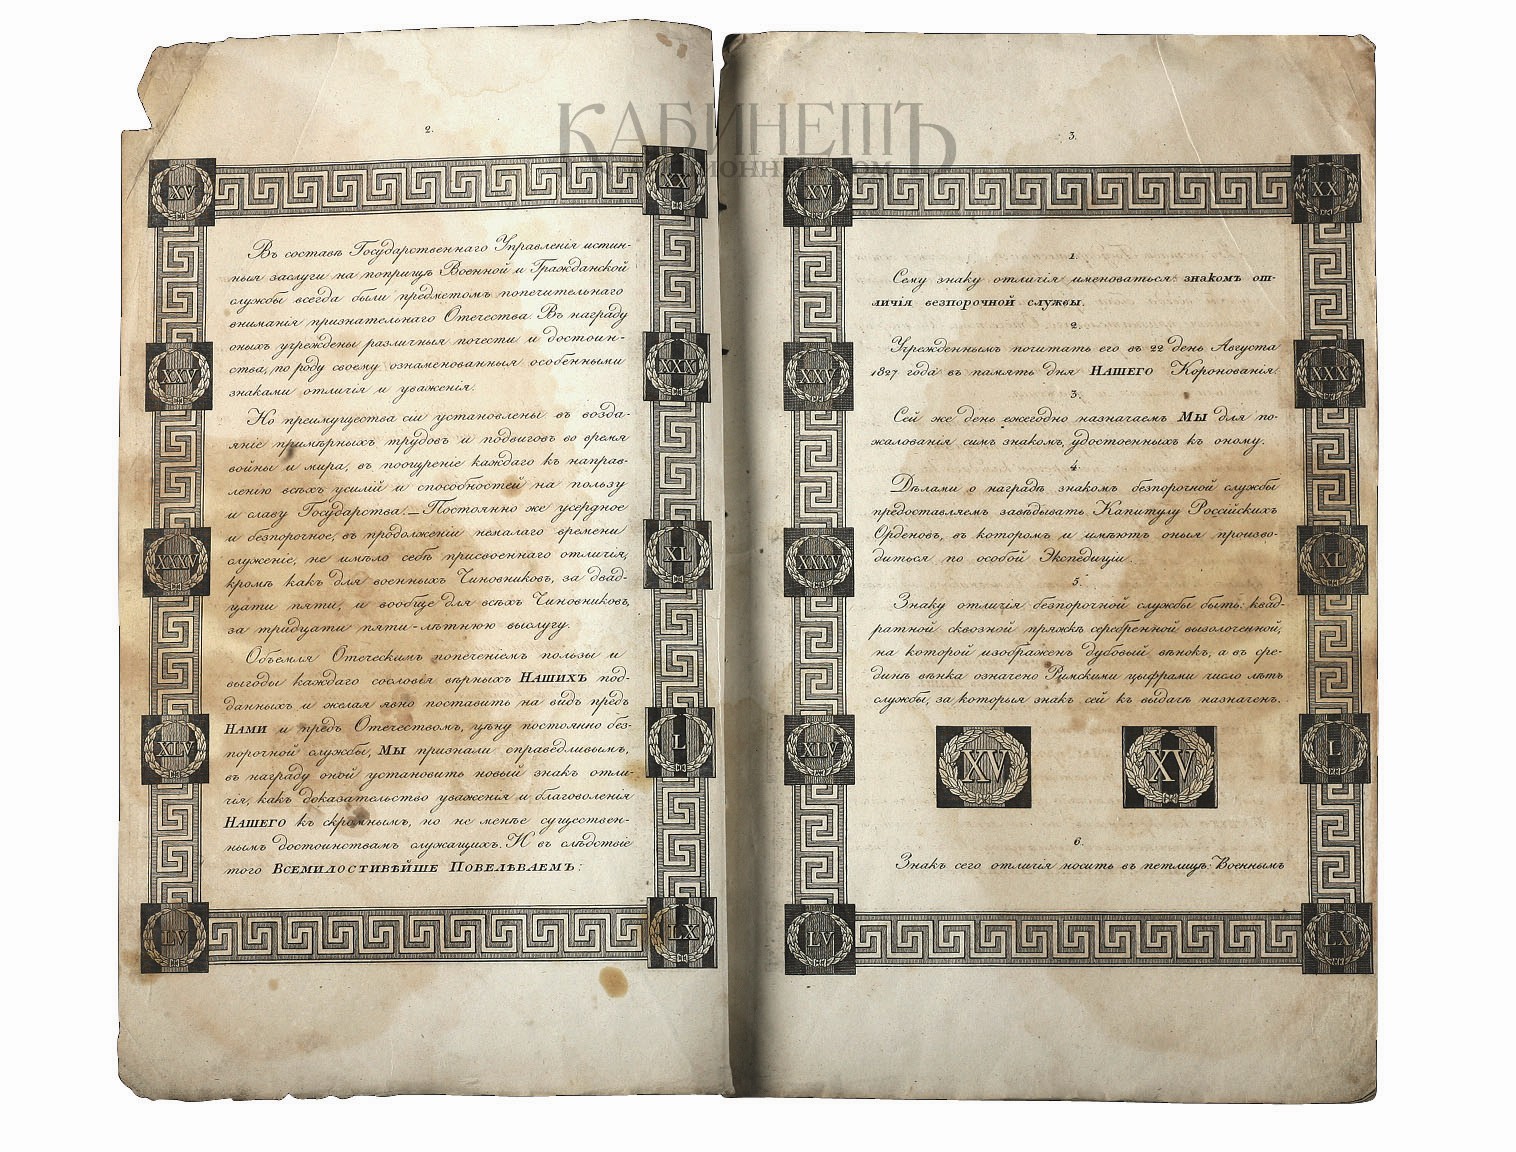 КАБИНЕТЪ
2.
XV
XX
Въ составѣ Государственнаго Управленія истин-
ныя заслуги на поприщѣ Военной и Гражданской
службы всегда были предметомъ попечительнаго
вниманія признательнаго Отечества. Въ награду
оныхъ учреждены различныя почести и достоин-
ства, по роду своему ознаменованныя особенными
знаками отличія и уваженія.
XXV
XXX
Но преимущества сіи установлены въ возда-
яніе примѣрныхъ трудовъ и подвиговъ во время
войны и мира, въ поощреніе каждаго къ направ-
ленію всѣхъ усилій и способностей на пользу
и славу Государства. — Постоянно же усердное
и безпорочное, въ продолженіи немалаго времени
служеніе, не имѣло себѣ присвоеннаго отличія,
кромѣ какъ для военныхъ Чиновниковъ, за двад-
цати пяти, и вообще для всѣхъ Чиновниковъ,
за тридцати пяти-лѣтнюю выслугу.
XXXV
XL
Объемля Отеческимъ попеченіемъ пользы и
выгоды каждаго сословія вѣрныхъ НАШИХЪ под-
данныхъ и желая явно поставить на видъ предъ
НАМИ и предъ Отечествомъ, цѣну постоянно без-
порочной службы, МЫ признали справедливымъ,
въ награду оной установить новый знакъ отли-
чія, какъ доказательство уваженія и благоволенія
НАШЕГО къ скромнымъ, но не менѣе существен-
нымъ достоинствамъ служащихъ. И въ слѣдствіе
того ВСЕМИЛОСТИВѢЙШЕ ПОВЕЛѢВАЕМЪ:
XLV
L
LV
LX
3.
XV
XX
1.
Сему знаку отличія именоваться: знакомъ от-
личія безпорочной службы.
2.
Учрежденнымъ почитать его въ 22 день Августа
1827 года въ память дня НАШЕГО Коронованія.
XXV
XXX
3.
Сей же день ежегодно назначаемъ МЫ для по-
жалованія симъ знакомъ, удостоенныхъ къ оному.
4.
Дѣлами о наградѣ знакомъ безпорочной службы
предоставляемъ завѣдывать Капитулу Россійскихъ
Орденовъ, въ которомъ и имѣютъ оныя произво-
диться по особой Экспедиціи.
XXXV
XL
5.
Знаку отличія безпорочной службы быть: квад-
ратной сквозной пряжкѣ серебренной вызолоченной,
на которой изображенъ дубовый вѣнокъ, а въ сре-
динѣ вѣнка означено Римскими цыфрами число лѣтъ
службы, за которыя знакъ сей къ выдачѣ назначенъ.
XLV
L
XV
XV
6.
Знакъ сего отличія носить въ петлицѣ: Военнымъ
LV
LX